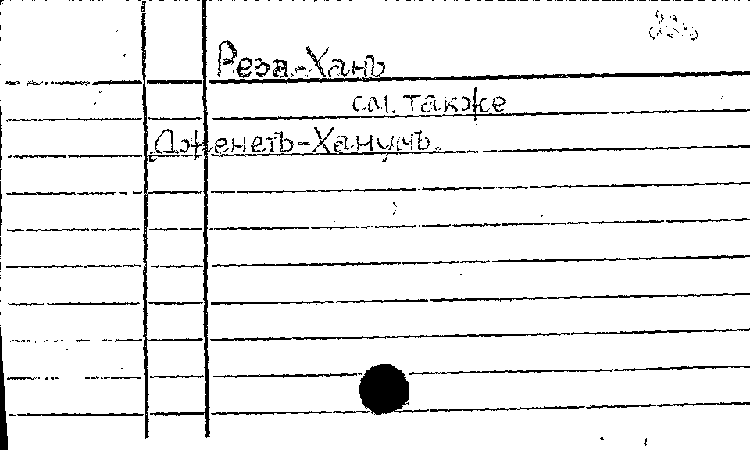 Реза-Ханъ
см. также
Дженетъ-Ханумъ.